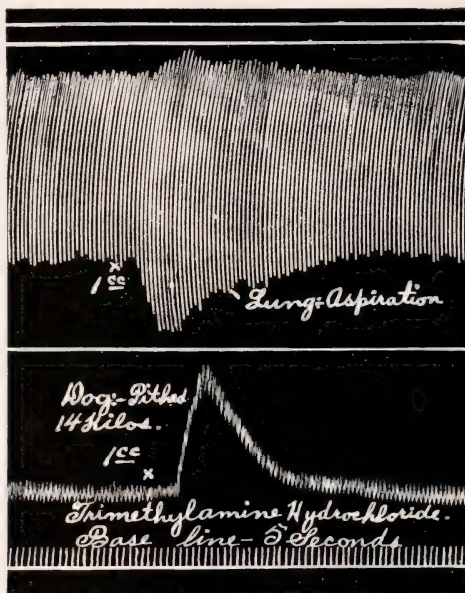 x
1 cc
Lung:-Aspiration
Dog:- Pithed
14 Kilos.
1 cc
x
Trimethylamine Hydrochloride.
Base line - 5 Seconds